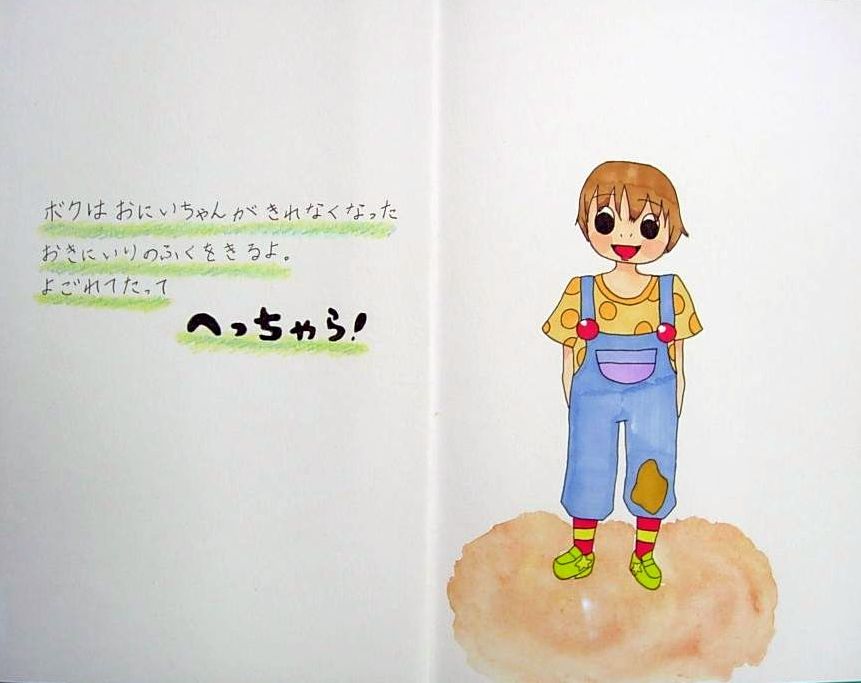 ボクは おにいちゃんが きれなくなった
おきにいりのふくをきるよ。
よごれてたって
へっちゃら!